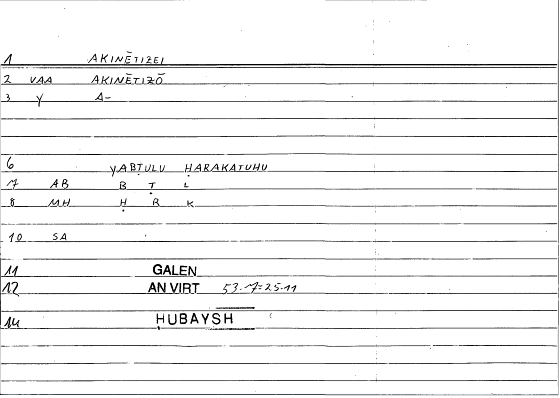 1 AKINĒTIZEI
2 VAA AKINĒTIZŌ
3 Y A-
6 YABṬULU ḤARAKATUHU
7 AB B Ṭ L
8 MH Ḥ R K
10 SA
11 GALEN
12 AN VIRT 53.7=25.11
14 ḤUBAYSH